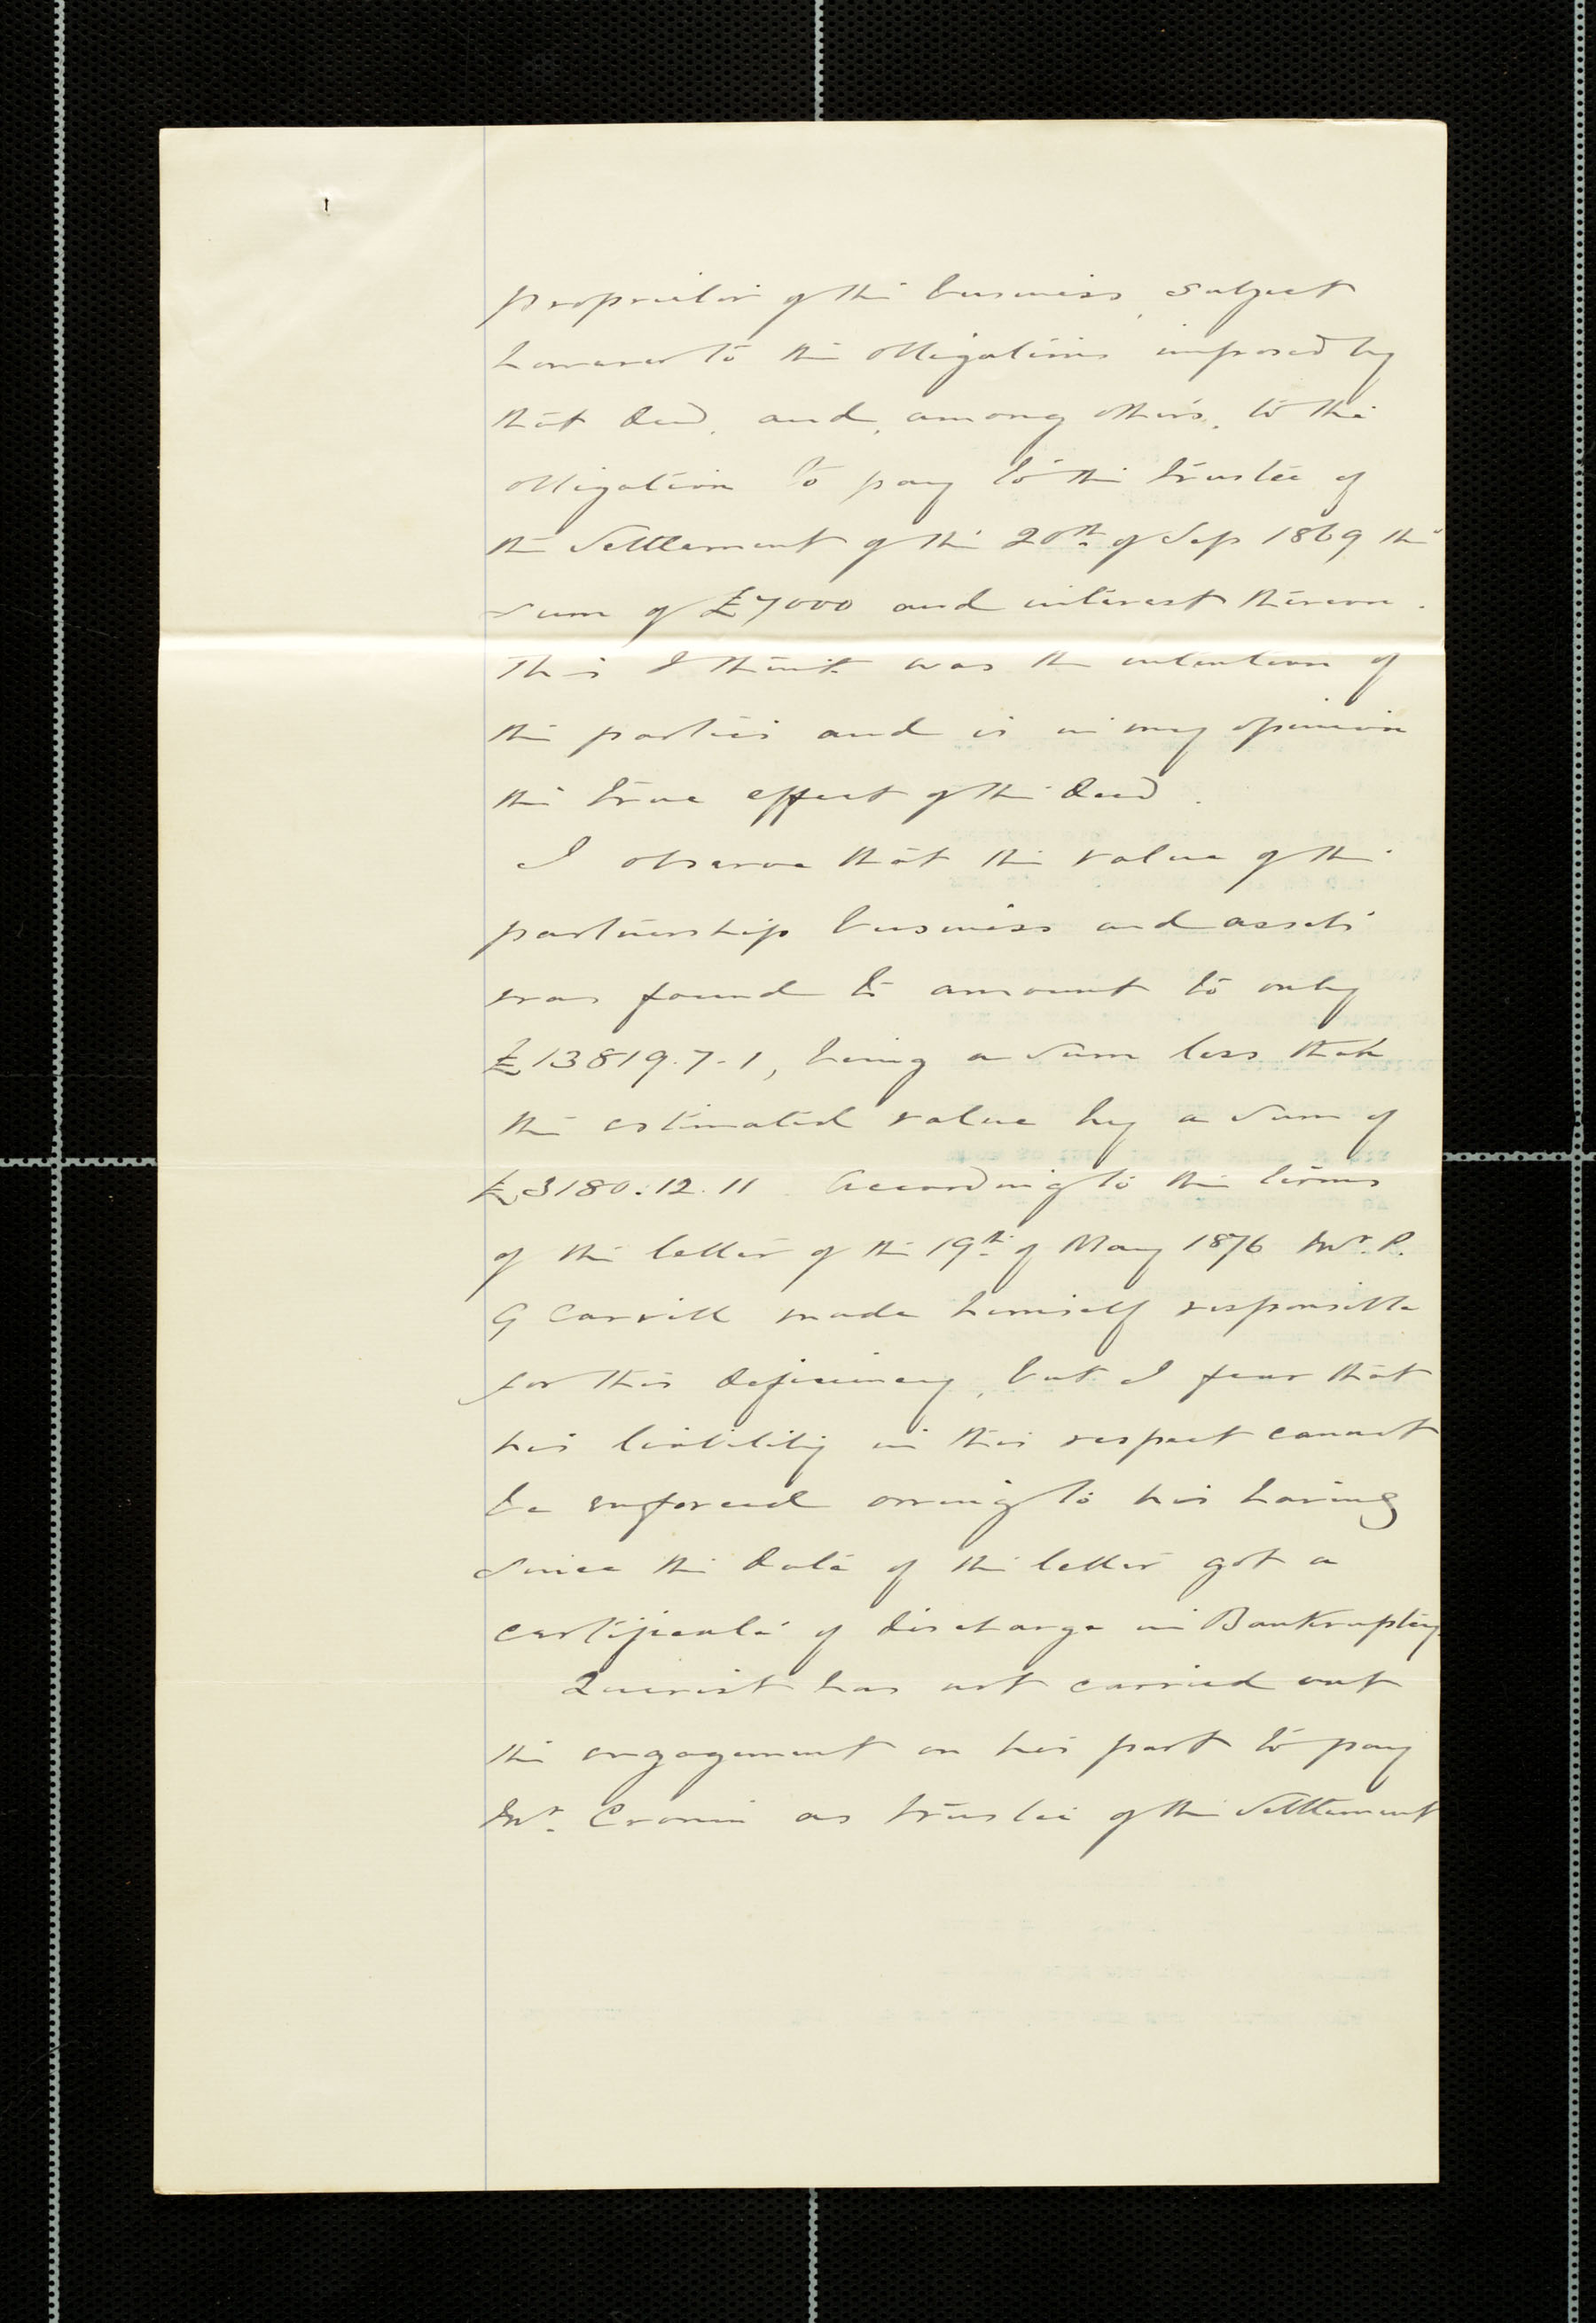 proprietor of the business, subject
however to the obligations imposed by
that deed, and, among others, to the
obligation to pay to the trustee of
the Settlement of the 20th of Sep 1869 the
sum of £7000 and interest thereon.
This I think was the intention of
the parties and is in my opinion
the true effect of the deed.
I observe that the value of the
partnership business and assets
was found to amount to only
£13819.7.1, being a sum less than
the estimated value by a sum of
£3180.12.11 According to the terms
of the letter of the 19th of May 1876 Mr. P.
G Carvill made himself responsible
for this deficiency, but I fear that
his liability in this respect cannot
be enforced owing to his having
since the date of the letter got a
certificate of discharge in Bankruptcy
Querist has not carried out
the engagement on his part to pay
Mr. Cronin as trustee of the Settlement